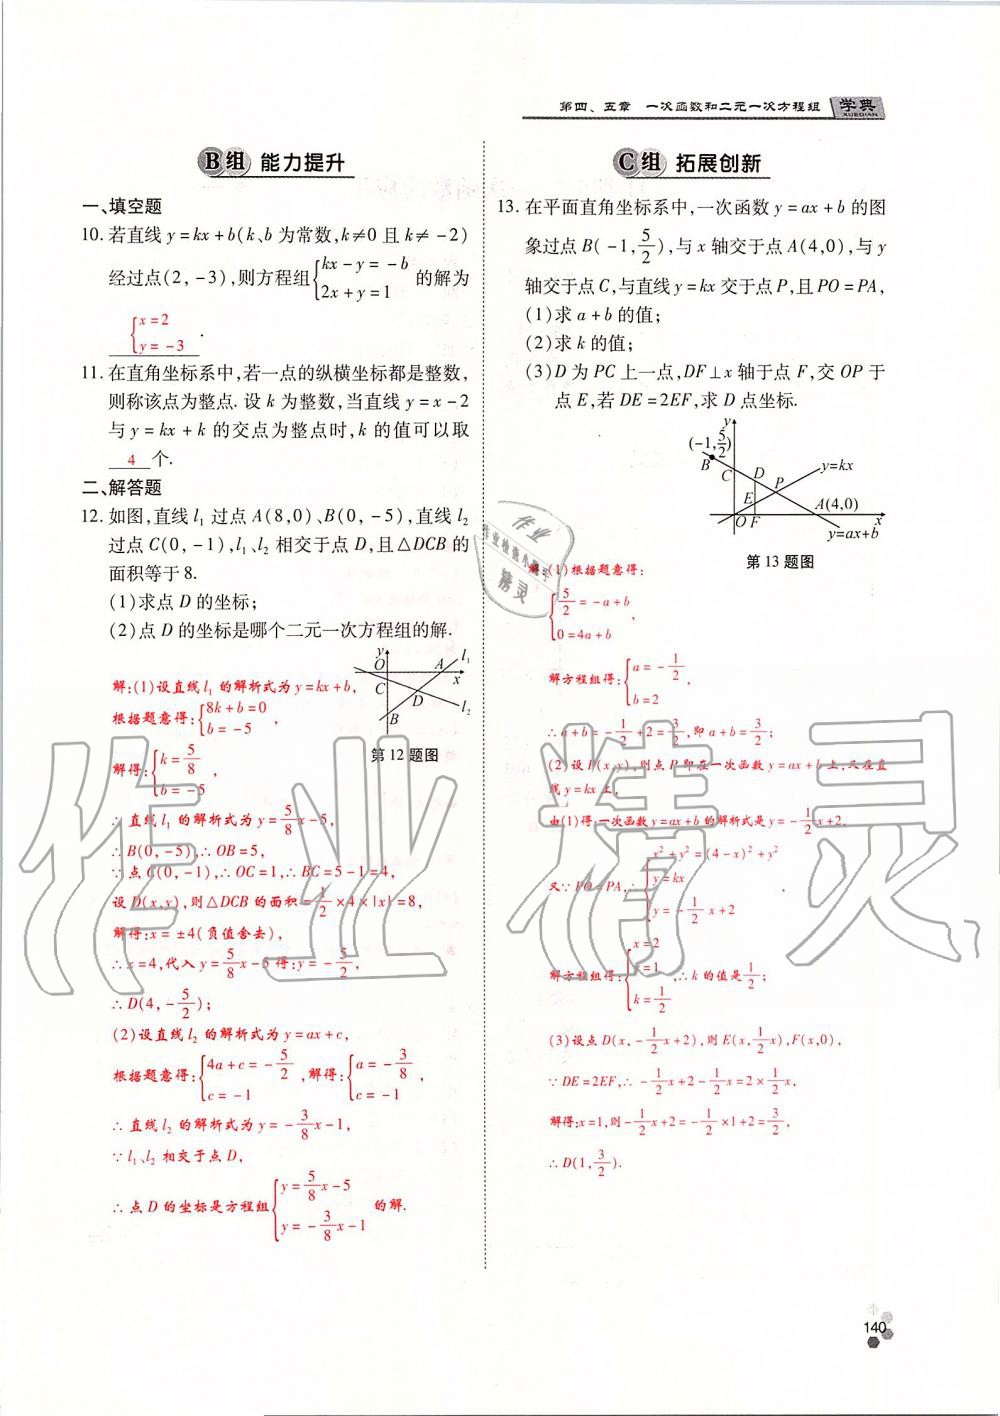 第四、五章 一次函数和二元一次方程组 学典
XUEDIAN
B组 能力提升
一、填空题
10. 若直线 y=kx+b(k、b 为常数,k≠0 且 k≠-2)
经过点(2,-3),则方程组{kx-y=-b 2x+y=1 的解为
{x=2 y=-3.
11. 在直角坐标系中,若一点的纵横坐标都是整数,
则称该点为整点. 设 k 为整数,当直线 y=x-2
与 y=kx+k 的交点为整点时,k 的值可以取
4 个.
二、解答题
12. 如图,直线 l₁ 过点 A(8,0)、B(0,-5),直线 l₂
过点 C(0,-1),l₁、l₂ 相交于点 D,且△DCB 的
面积等于 8.
(1)求点 D 的坐标;
(2)点 D 的坐标是哪个二元一次方程组的解.
y O A l₁ x C D l₂ B
第 12 题图
解:(1)设直线 l₁ 的解析式为 y=kx+b,
根据题意得:{8k+b=0 b=-5,
解得:{k=5/8 b=-5,
∴直线 l₁ 的解析式为 y=5/8x-5,
∴B(0,-5),∴OB=5,
∵点 C(0,-1),∴OC=1,∴BC=5-1=4,
设 D(x,y),则△DCB 的面积=1/2×4×|x|=8,
解得:x=±4(负值舍去),
∴x=4,代入 y=5/8x-5 得:y=-5/2,
∴D(4,-5/2);
(2)设直线 l₂ 的解析式为 y=ax+c,
根据题意得:{4a+c=-5/2 c=-1,解得:{a=-3/8 c=-1,
∴直线 l₂ 的解析式为 y=-3/8x-1,
∵l₁、l₂ 相交于点 D,
∴点 D 的坐标是方程组{y=5/8x-5 y=-3/8x-1 的解.
C组 拓展创新
13. 在平面直角坐标系中,一次函数 y=ax+b 的图
象过点 B(-1,5/2),与 x 轴交于点 A(4,0),与 y
轴交于点 C,与直线 y=kx 交于点 P,且 PO=PA,
(1)求 a+b 的值;
(2)求 k 的值;
(3)D 为 PC 上一点,DF⊥x 轴于点 F,交 OP 于
点 E,若 DE=2EF,求 D 点坐标.
y (-1,5/2) B C D y=kx E P A(4,0) O F x y=ax+b
第 13 题图
解:(1)根据题意得:
{5/2=-a+b 0=4a+b,
解方程组得:{a=-1/2 b=2,
∴a+b=-1/2+2=3/2,即 a+b=3/2;
(2)设 P(x,y),则点 P 即在一次函数 y=ax+b 上,又在直
线 y=kx 上,
由(1)得:一次函数 y=ax+b 的解析式是 y=-1/2x+2,
又∵PO=PA,∴{x²+y²=(4-x)²+y² y=kx y=-1/2x+2
解方程组得:{x=2 y=1 k=1/2,∴k 的值是1/2;
(3)设点 D(x,-1/2x+2),则 E(x,1/2x),F(x,0),
∵DE=2EF,∴-1/2x+2-1/2x=2×1/2x,
解得:x=1,则-1/2x+2=-1/2×1+2=3/2,
∴D(1,3/2).
作业精灵
作业
作业检查小助手
精灵
140